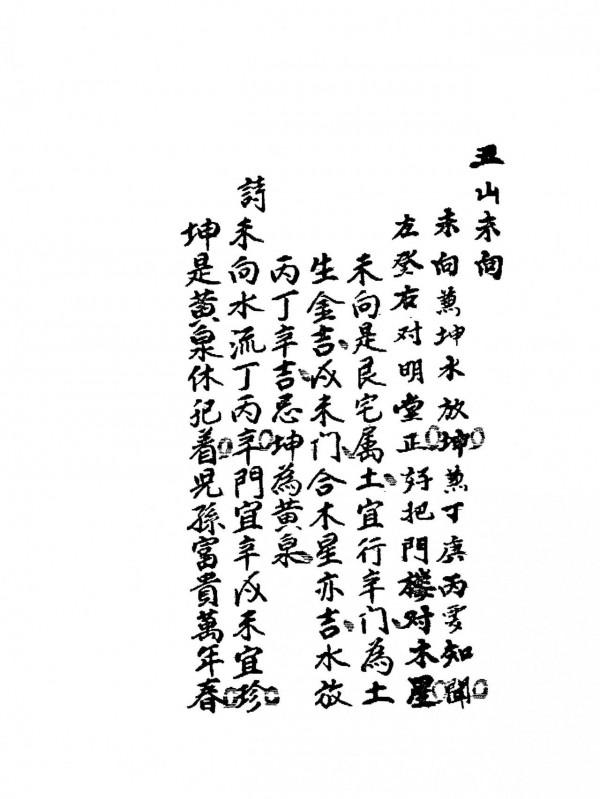 丑山未向
未向兼坤水放坤兼丁庚丙要知闻
左癸右对明堂正好把門楼对木星
未向是艮宅属土宜行辛门為土
生金吉戌未门合木星亦吉水放
丙丁辛吉忌坤為黄泉
詩 未向水流丁丙辛門宜辛戌未宜珍
坤是黄泉休犯着児孫富貴萬年春